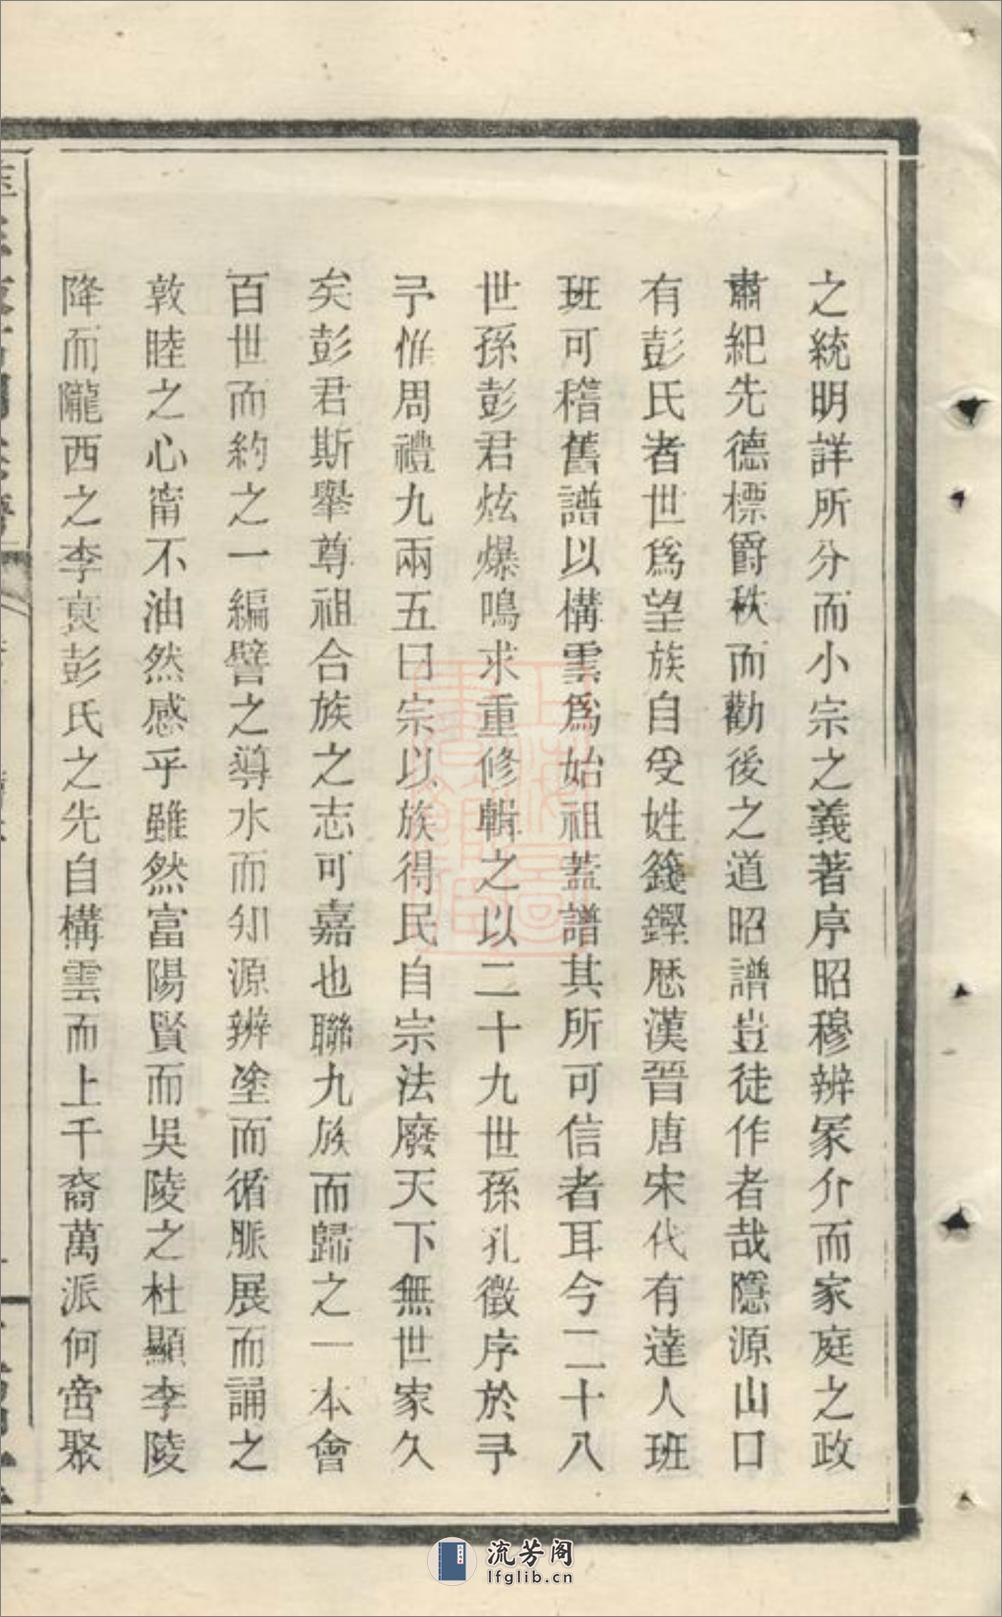 之統明詳所分而小宗之義著序昭穆辨冢介而家庭之政
肅紀先德標爵秩而勸後之道昭譜豈徒作者哉隱源山口
有彭氏者世爲望族自受姓籛鏗歷漢晉唐宋代有達人班
班可稽舊譜以構雲爲始祖蓋譜其所可信者耳今二十八
世孫彭君炫爆鳴求重修輯之以二十九世孫孔徵序於予
予惟周禮九兩五曰宗以族得民自宗法廢天下無世家久
矣彭君斯舉尊祖合族之志可嘉也聯九族而歸之一本會
百世而約之一編譬之導水而知源辨塗而循脈展而誦之
敦睦之心甯不油然感乎雖然富陽賢而吳陵之杜顯李陵
降而隴西之李衰彭氏之先自構雲而上千裔萬派何啻聚
流芳阁
lfglib.cn